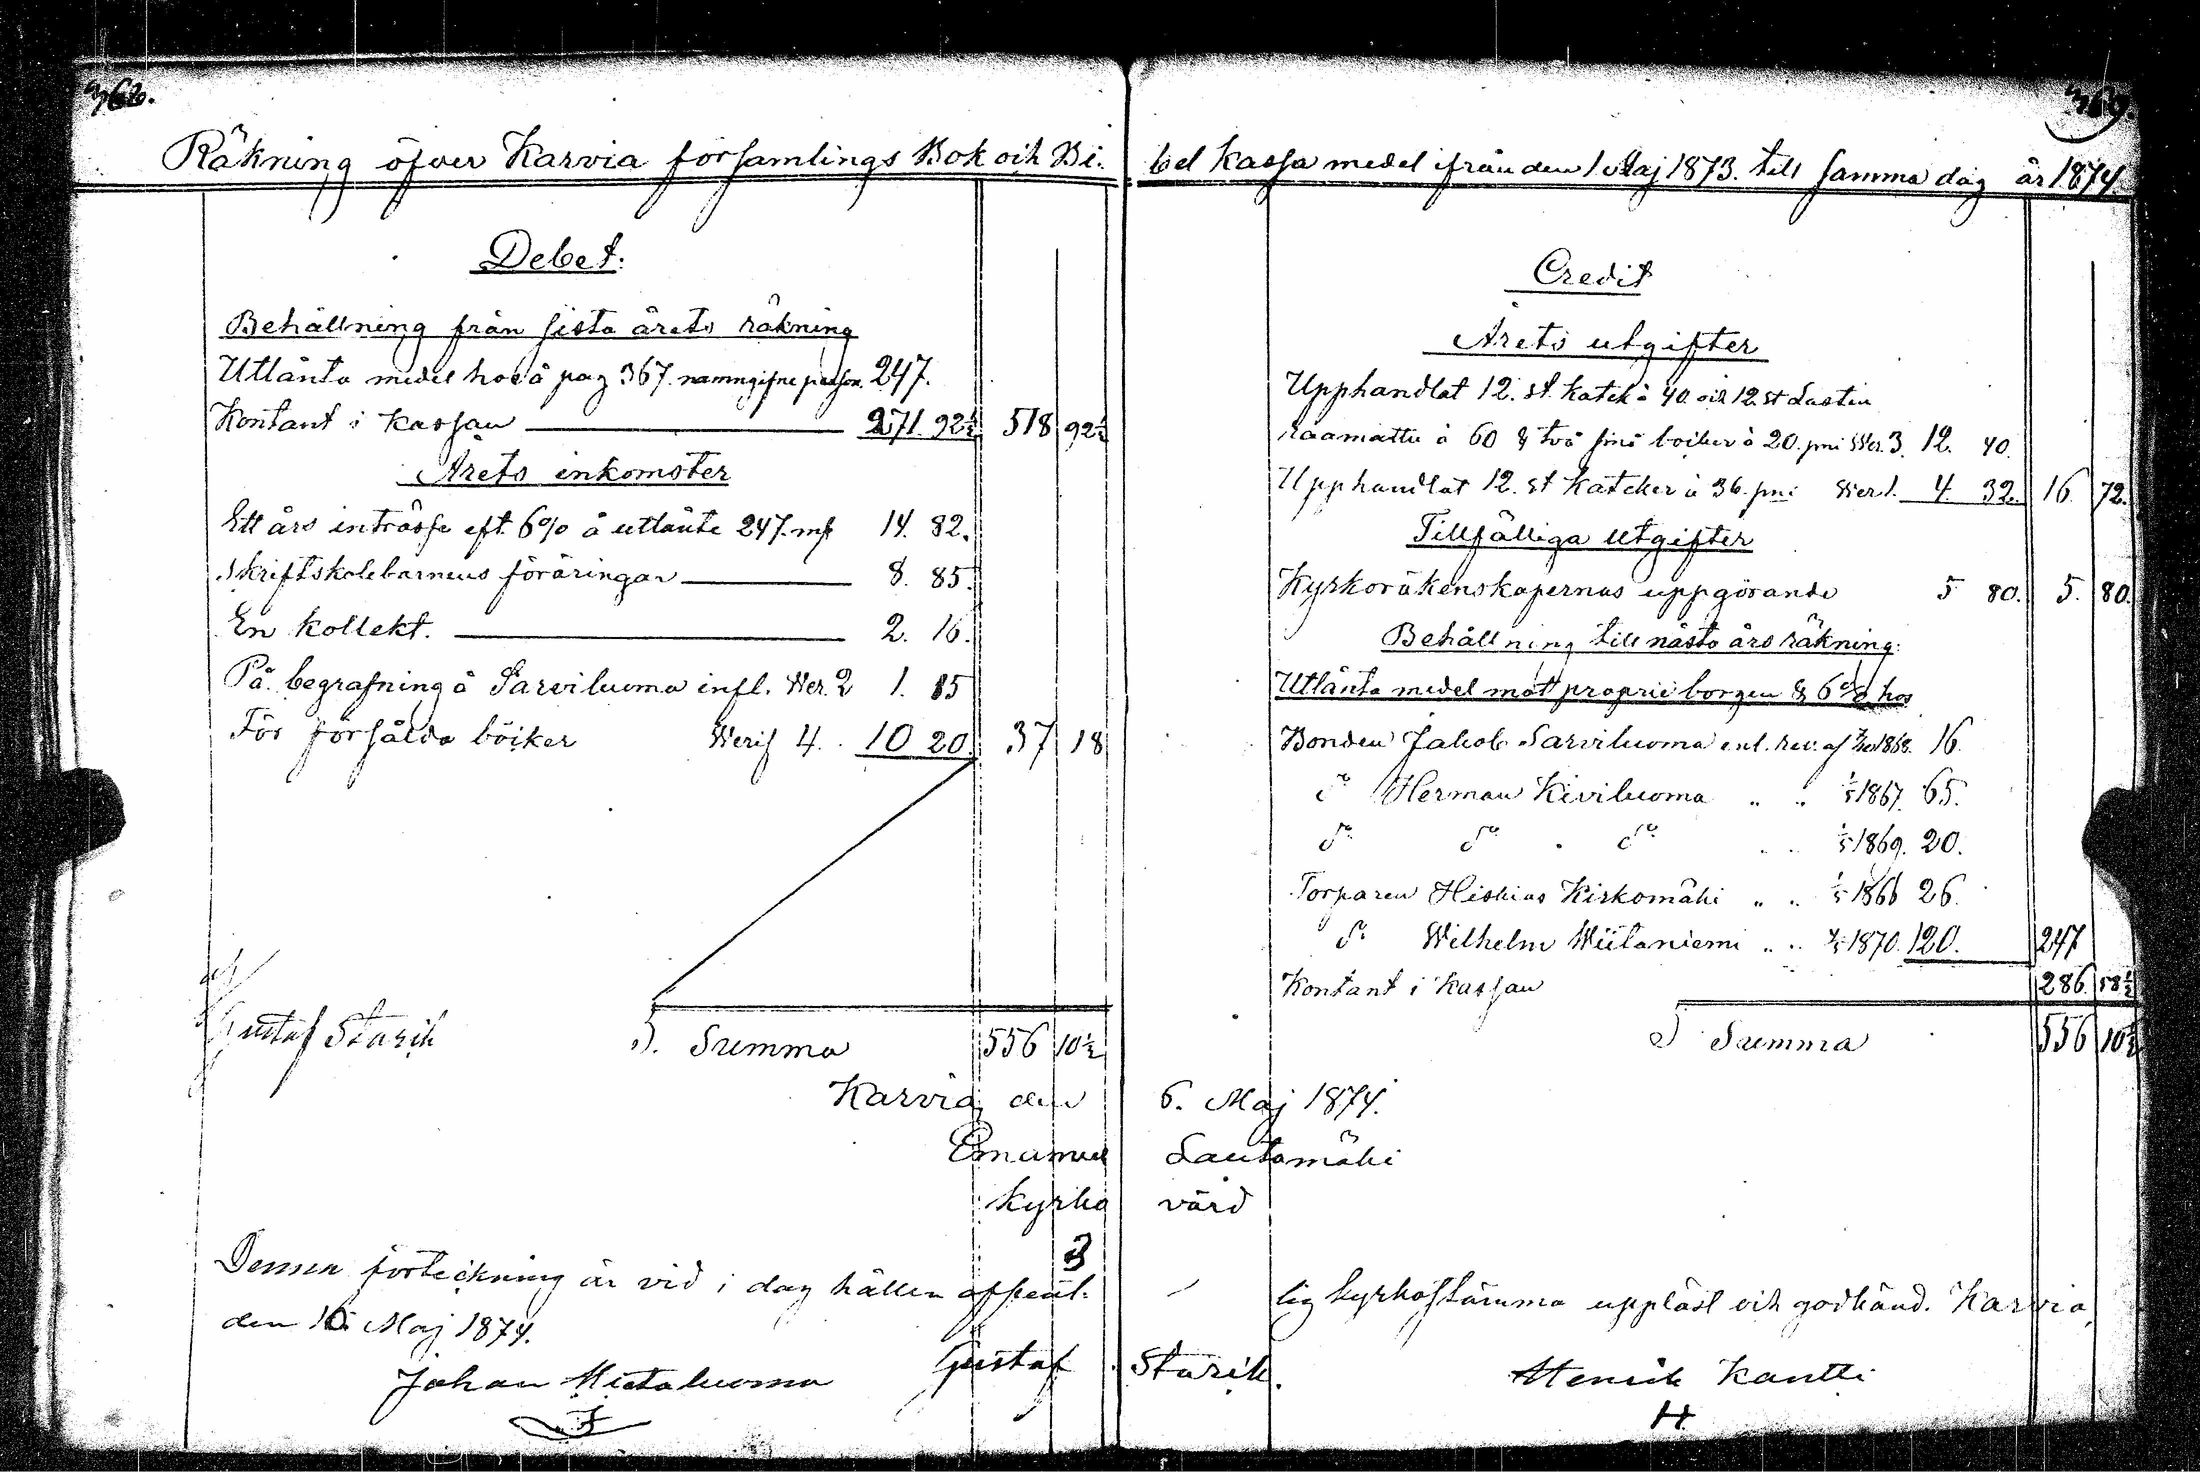 368.
369.
Räkning öfver Karvia församlings Bok och Bi- bel Kassa medel ifrån den 1 Maj 1873. till samma dag år 1874.
Debet.
Behållning från sista årets räkning
Utlånta medel hos å pag 367. namngifne person. 247.
Kontant i Kassan 271. 92½ 518 92½
Årets inkomster
Ett års inträsse eft. 6% å utlånte 247. mk 14. 82.
Skriftskolebarnens föräringar 8. 85.
En kollekt. 2. 16.
På begrafning å Sarviluoma infl. Ver. 2 1. 15
För försålda böcker Verif 4. 10 20. 37 18
Gustaf Starik
S. Summa 556 10½
Credit
Årets utgifter
Upphandlat 12. st. Katek à 40. och 12 st Lasten
raamattu à 60 & två små böcker à 20. pni Ver. 3. 12. 40.
Upphandlat 12. st Kateker à 36. pni Ver 1. 4. 32. 16. 72.
Tillfälliga Utgifter
Kyrkoräkenskapernas uppgörande 5 80. 5. 80.
Behållning till nästa års räkning.
Utlånta medel mot proprie borgen & 6% hos
Bonden Jakob Sarviluoma enl. rev. af 1868. 16.
do Herman Kiviluoma " " 1/5 1867. 65.
do do " do " " 1/5 1869. 20.
Torparen Hiskias Kirkomäki " " 1/5 1866 26.
do Wilhelm Wiitaniemi " " 1870. 120. 247
Kontant i Kassan 286. 58½
S Summa 556 10½
Karvia den 6. Maj 1874.
Emanuel Lautamäki
Kyrko värd
Denna förteckning är vid i dag hållen offent- lig kyrkostämma uppläst och godkänd. Karvia,
den 10. Maj 1874.
Johan Mietaluoma Gustaf Starik. Henrik Kantti